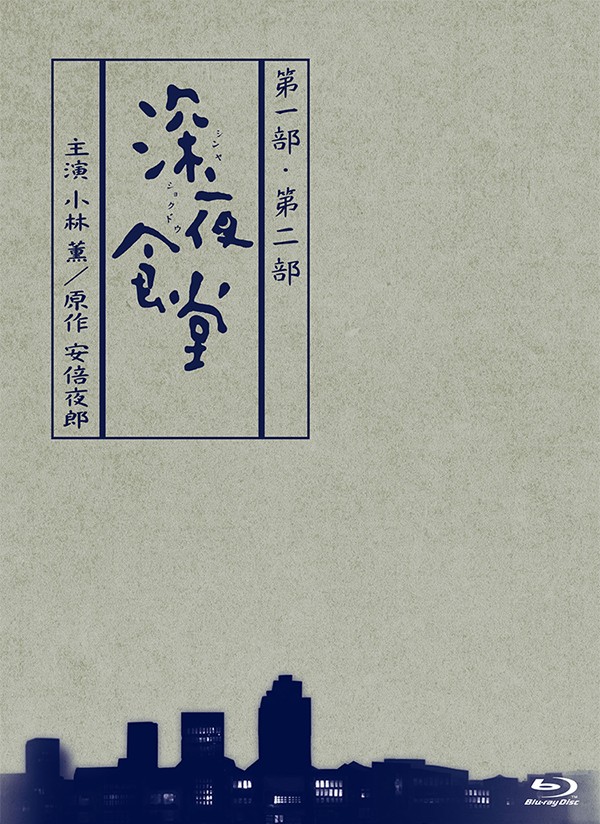 第一部・第二部
深夜
シンヤ
食堂
ショクドウ
主演 小林 薫/原作 安倍夜郎
Blu-ray Disc